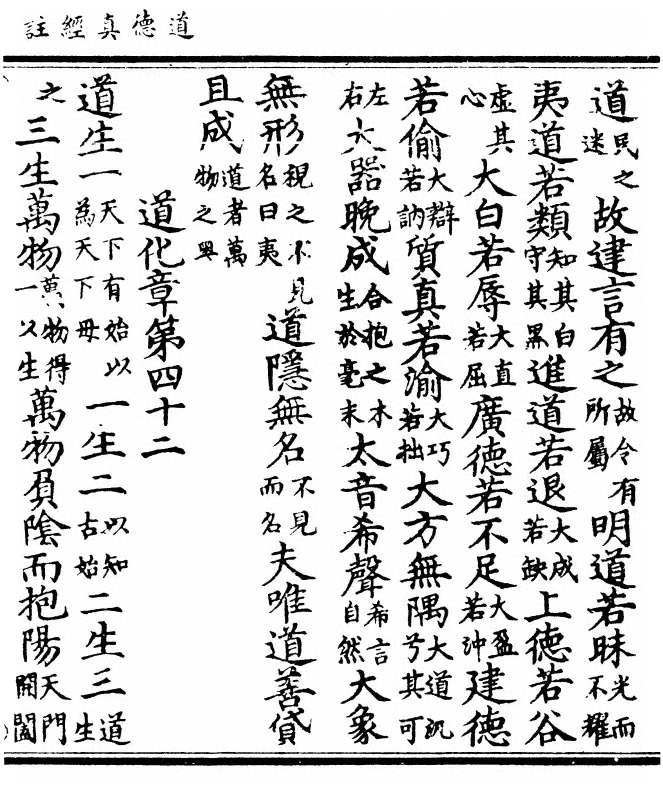 道德真經註
道民之迷故建言有之故令有所屬明道若昧光而不耀
夷道若類知其白守其黑進道若退大成若缺上德若谷
虛其心大白若辱大直若屈廣德若不足大盈若沖建德
若偷大辯若訥質真若渝大巧若拙大方無隅大道汎兮其可
左右大器晚成合抱之木生於毫末太音希聲希言自然大象
無形視之不見名曰夷道隱無名不見而名夫唯道善貸
且成道者萬物之奧
道化章第四十二
道生一天下有始以為天下母一生二以知古始二生三道生
之三生萬物萬物得一以生萬物負陰而抱陽天門開闔